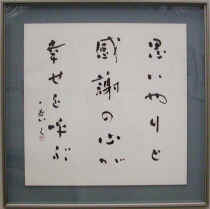 思いやりと
感謝の心が
幸せを呼ぶ